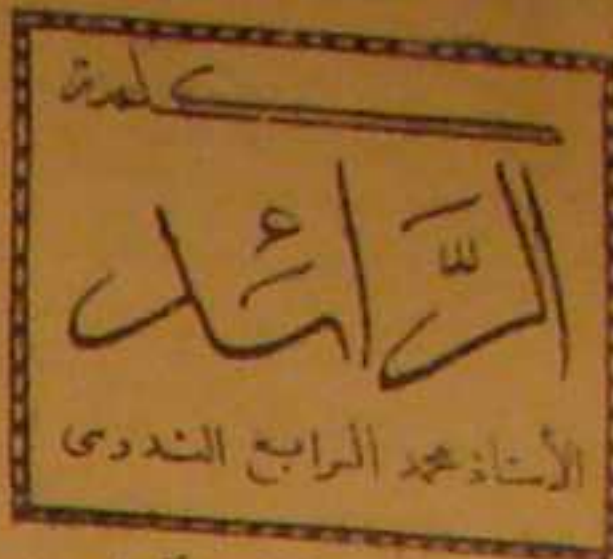 كلمة
الرَّائد
الأستاذ محمد الرابع الندوى